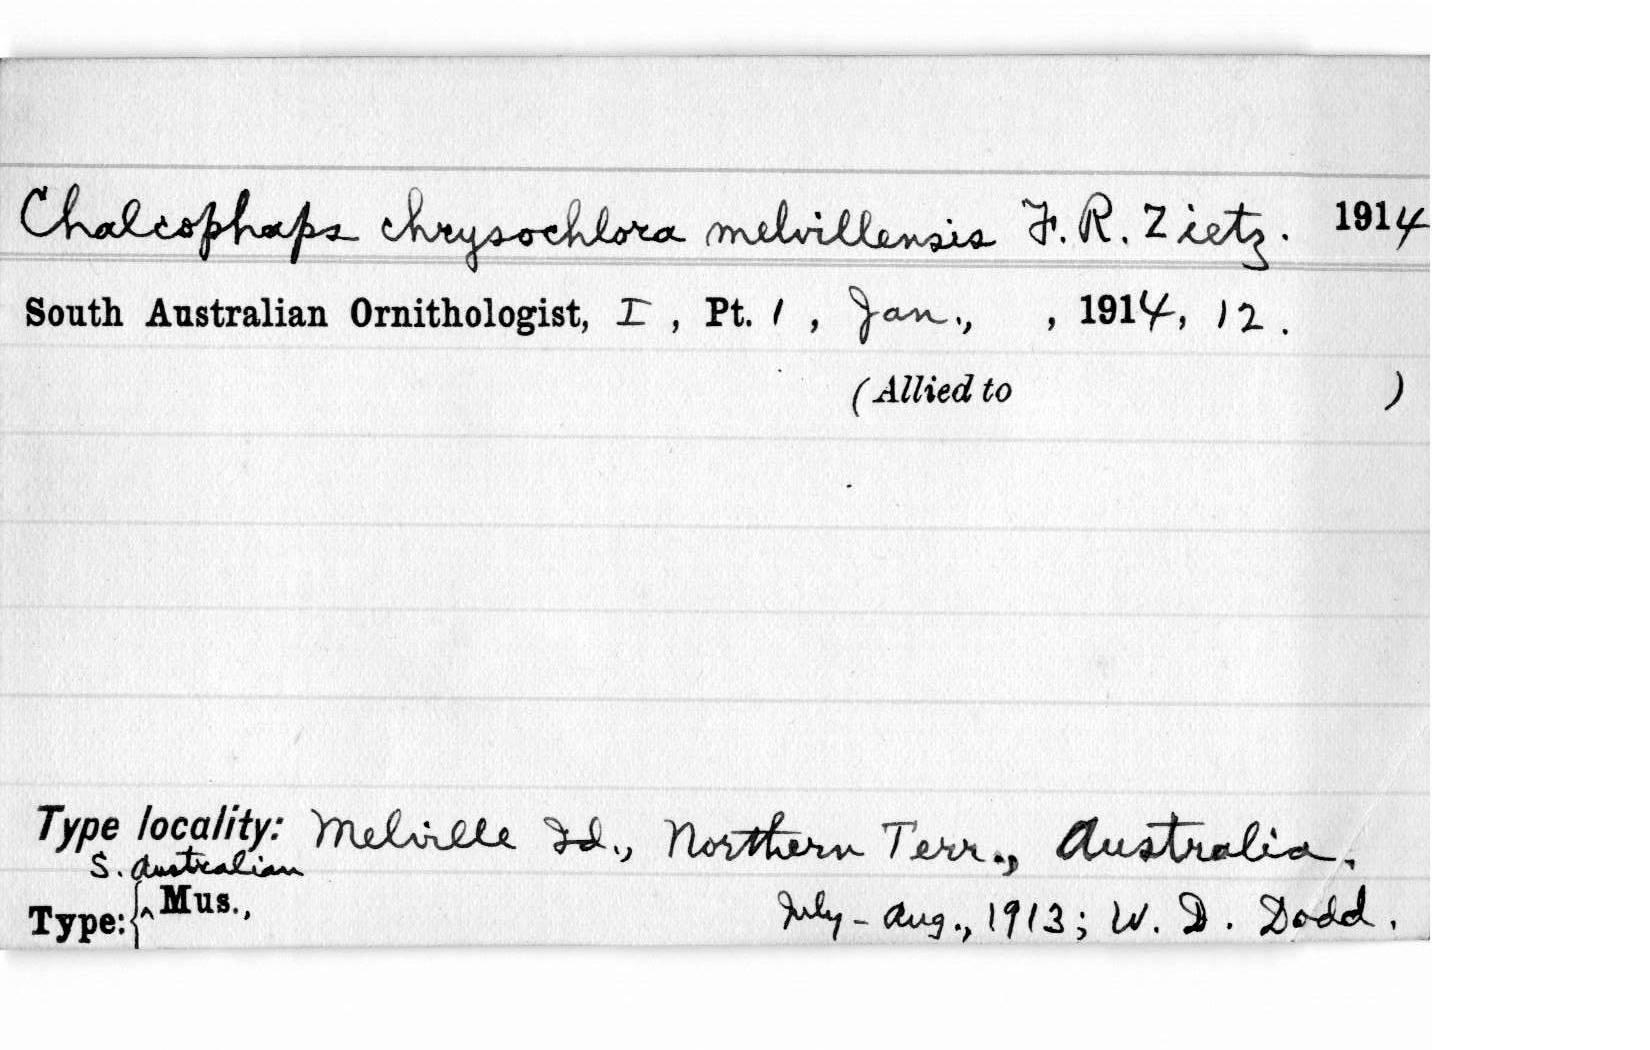 Chalcophaps chrysochlora melvillensis F. R. Zietz. 1914
South Australian Ornithologist, I, Pt. 1, Jan., , 1914, 12.
(Allied to )
Type locality: Melville Id., Northern Terr., Australia.
S. Australian
Type: {^ Mus., July - Aug., 1913; W. D. Dodd.